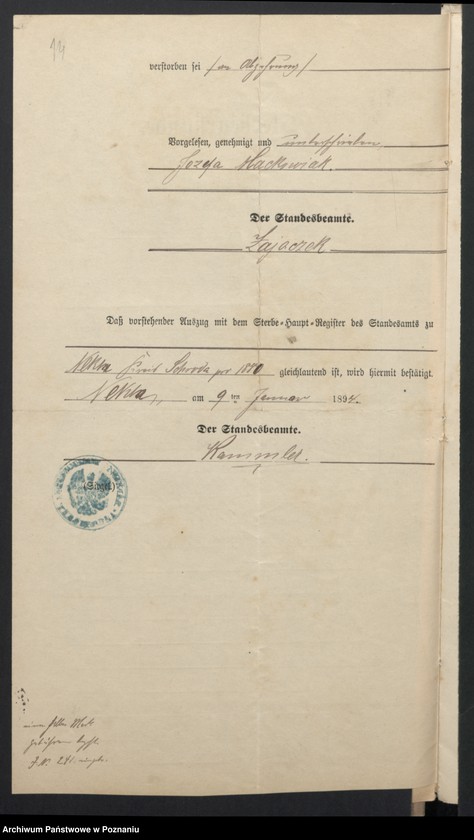 14
verstorben sei (an Abzehrung)
Vorgelesen, genehmigt und unterschrieben
Jozefa Mackowiak.
Der Standesbeamte.
Zajaczek
Daß vorstehender Auszug mit dem Sterbe-Haupt-Register des Standesamts zu
Nekla Kreis Schroda pro 1880 gleichlautend ist, wird hiermit bestätigt.
Nekla, am 9ten Januar 1894.
Der Standesbeamte.
Kammler.
(Siegel.)
Mark
J.N. 241.
Archiwum Państwowe w Poznaniu